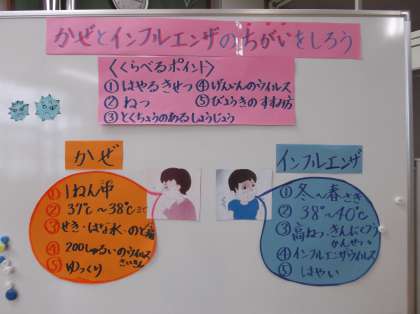 かぜとインフルエンザのちがいをしろう
〈くらべるポイント〉
①はやるきせつ ④げんいんのウイルス
②ねつ ⑤びょうきのすすみ方
③とくちょうのあるしょうじょう
かぜ
①1ねん中
②37℃〜38℃まで
③せき・はな水・のど痛
④200しゅるいのウイルス
さいきん
⑤ゆっくり
インフルエンザ
①冬〜春さき
②38℃〜40℃
③高ねつ・きんにくつう
かんせつつう
④インフルエンザウイルス
⑤はやい